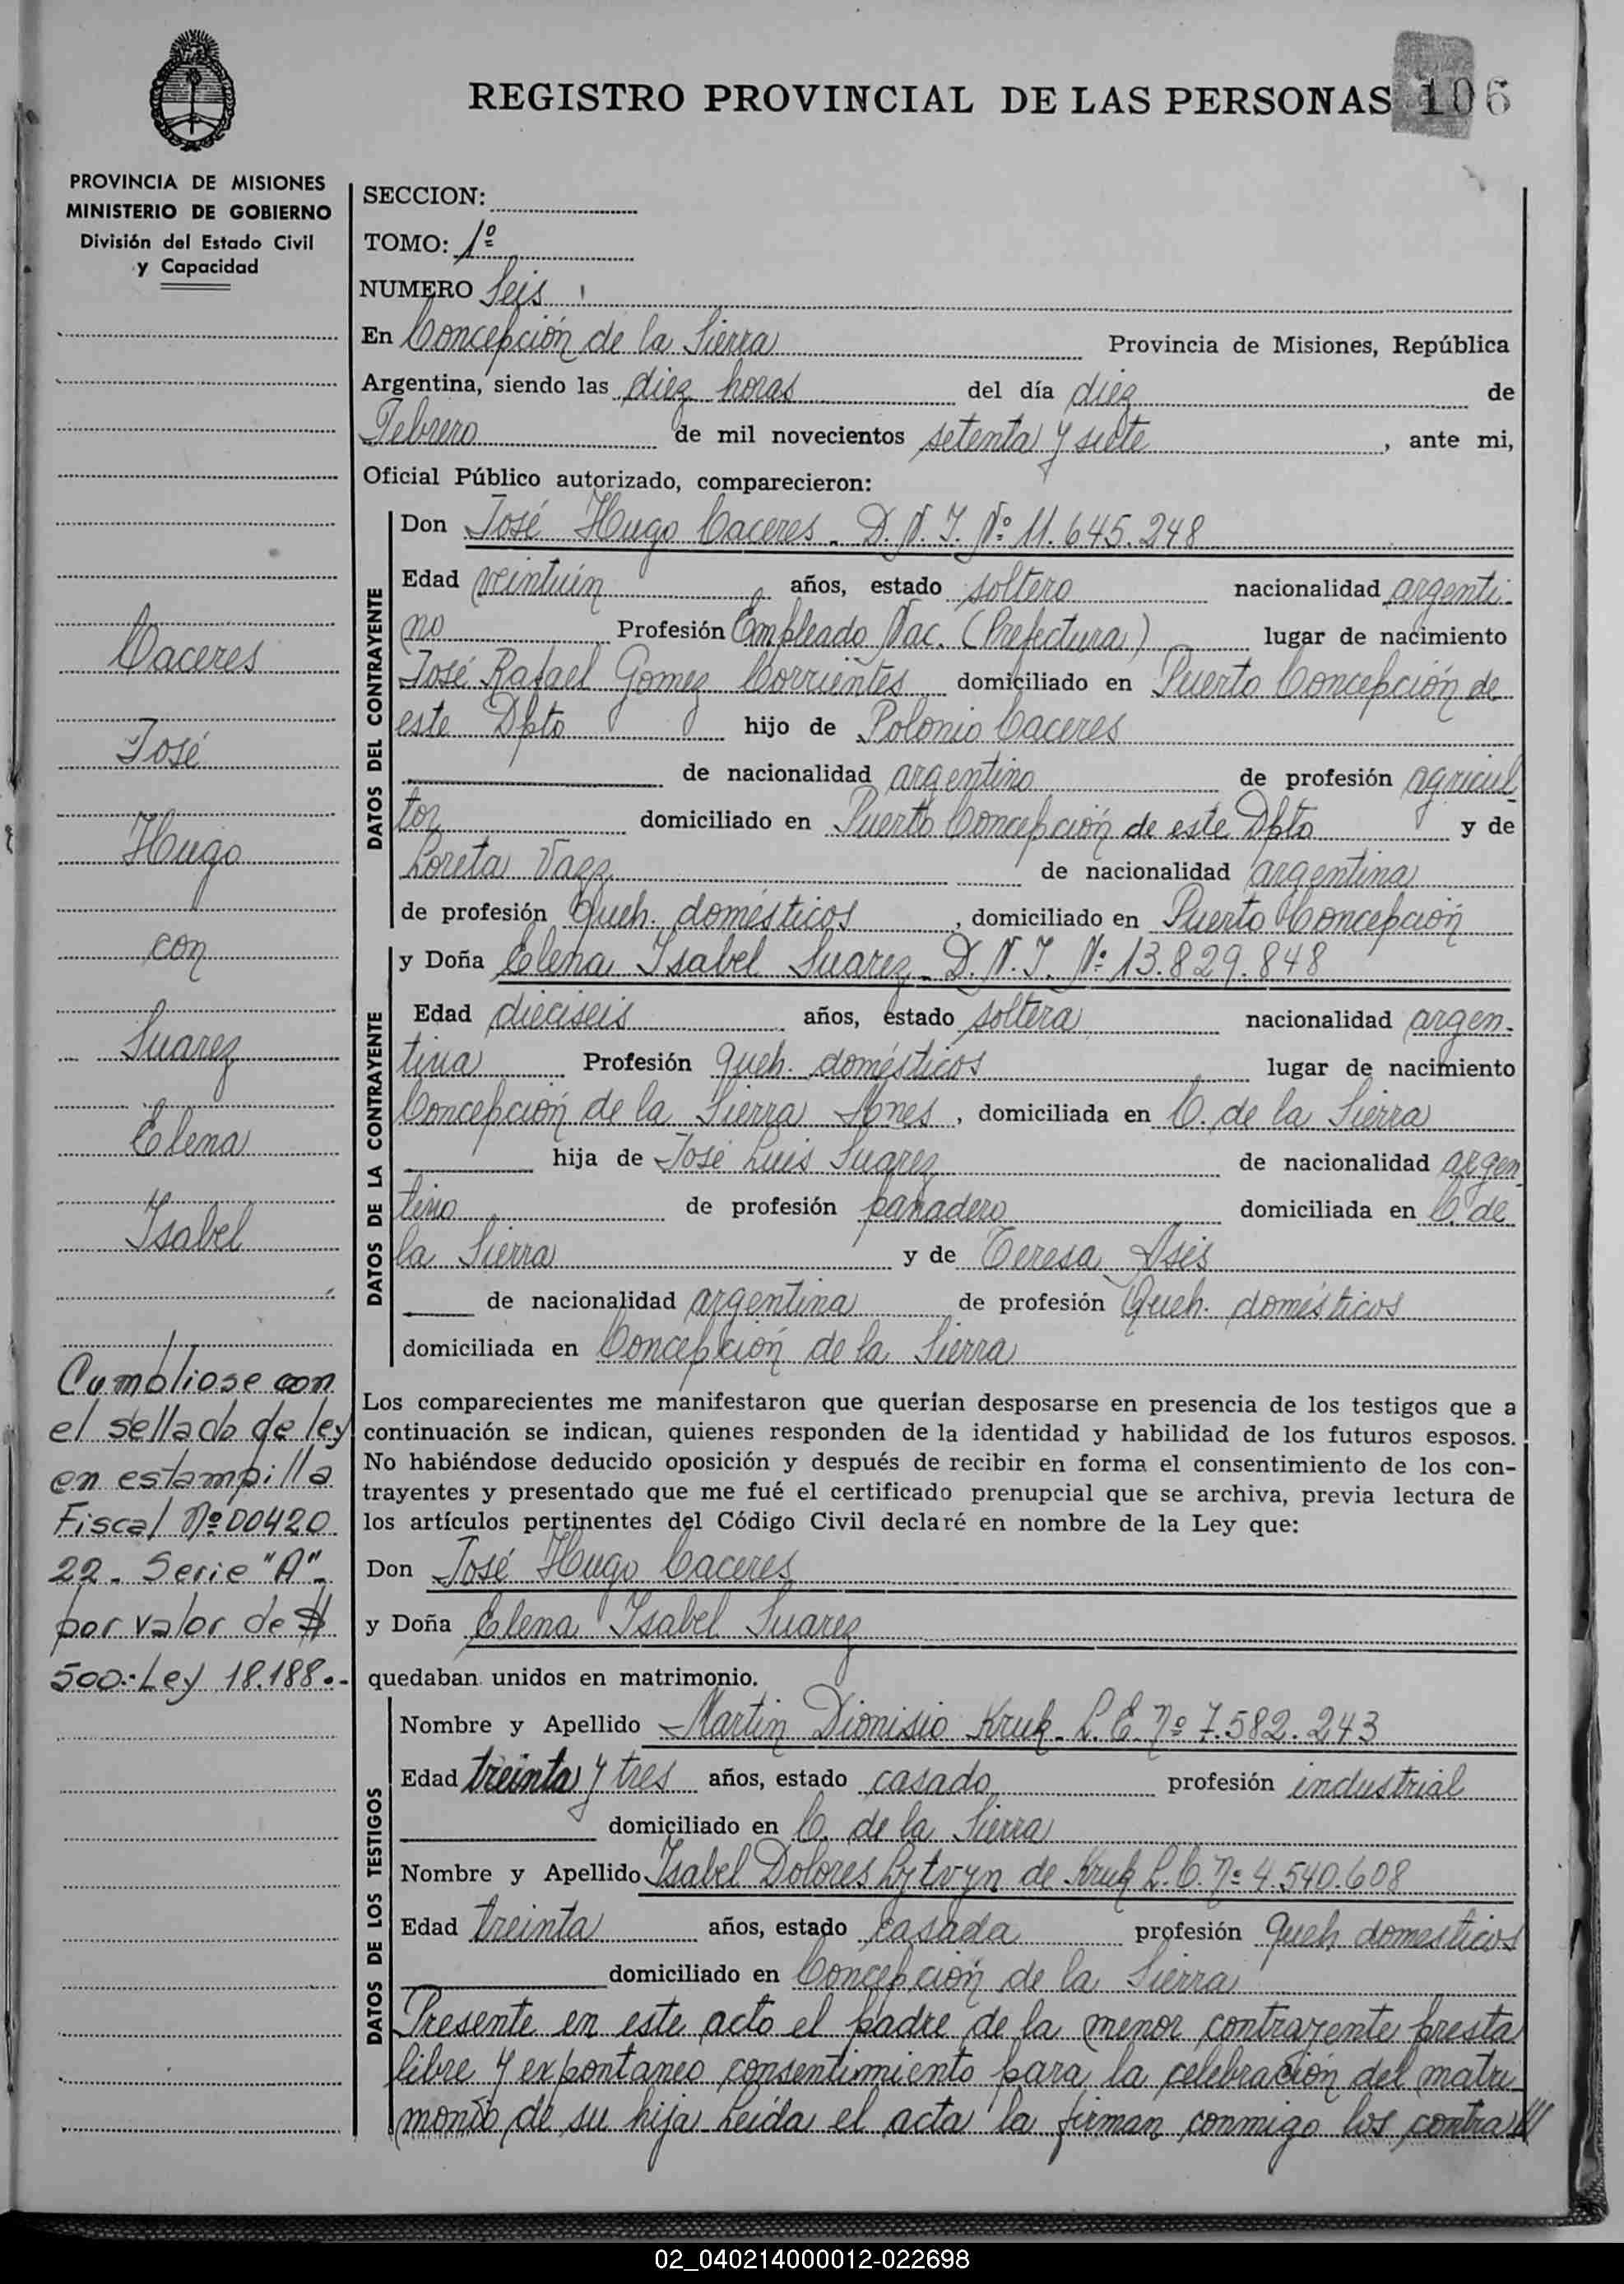 REGISTRO PROVINCIAL DE LAS PERSONAS 106
PROVINCIA DE MISIONES
MINISTERIO DE GOBIERNO
División del Estado Civil
y Capacidad
Caceres
José
Hugo
con
Suarez
Elena
Isabel
Cumpliose con
el sellado de ley
en estampilla
Fiscal Nº 00420
22 - Serie "A" -
por valor de $
500.- Ley 18.188.-
SECCION:
TOMO: 1º
NUMERO Seis
En Concepción de la Sierra Provincia de Misiones, República
Argentina, siendo las diez horas del día diez de
Febrero de mil novecientos setenta y siete, ante mi,
Oficial Público autorizado, comparecieron:
DATOS DEL CONTRAYENTE
Don José Hugo Caceres - D.N.I. Nº 11.645.248
Edad veintiún años, estado soltero nacionalidad argenti-
no Profesión Empleado Nac. (Prefectura) lugar de nacimiento
José Rafael Gomez Corrientes domiciliado en Puerto Concepción de
este Dpto hijo de Polonio Caceres
de nacionalidad argentino de profesión agricul
tor domiciliado en Puerto Concepción de este Dpto y de
Loreta de nacionalidad argentina
de profesión Queh. domésticos, domiciliado en Puerto Concepción
DATOS DE LA CONTRAYENTE
y Doña Elena Isabel Suarez - D.N.I. Nº 13.829.848
Edad dieciseis años, estado soltera nacionalidad argen-
tina Profesión queh. domésticos lugar de nacimiento
Concepción de la Sierra Mnes, domiciliada en C. de la Sierra
hija de José Luis Suarez de nacionalidad argen
tino de profesión panadero domiciliada en C. de
la Sierra y de Teresa Asis
de nacionalidad argentina de profesión Queh. domésticos
domiciliada en Concepción de la Sierra
Los comparecientes me manifestaron que querían desposarse en presencia de los testigos que a
continuación se indican, quienes responden de la identidad y habilidad de los futuros esposos.
No habiéndose deducido oposición y después de recibir en forma el consentimiento de los con-
trayentes y presentado que me fué el certificado prenupcial que se archiva, previa lectura de
los artículos pertinentes del Código Civil declaré en nombre de la Ley que:
Don José Hugo Caceres
y Doña Elena Isabel Suarez
quedaban unidos en matrimonio.
DATOS DE LOS TESTIGOS
Nombre y Apellido Martin Dionisio Kruk - L.E. Nº 7.582.243
Edad treinta y tres años, estado casado profesión industrial
domiciliado en C. de la Sierra
Nombre y Apellido Isabel Dolores Lytvyn de Kruk L.C. Nº 4.540.608
Edad treinta años, estado casada profesión queh domesticos
domiciliado en Concepción de la Sierra
Presente en este acto el padre de la menor contrayente presta
libre y expontaneo consentimiento para la celebración del matri
monio de su hija Leida el acta la firman conmigo los contra///
02_040214000012-022698